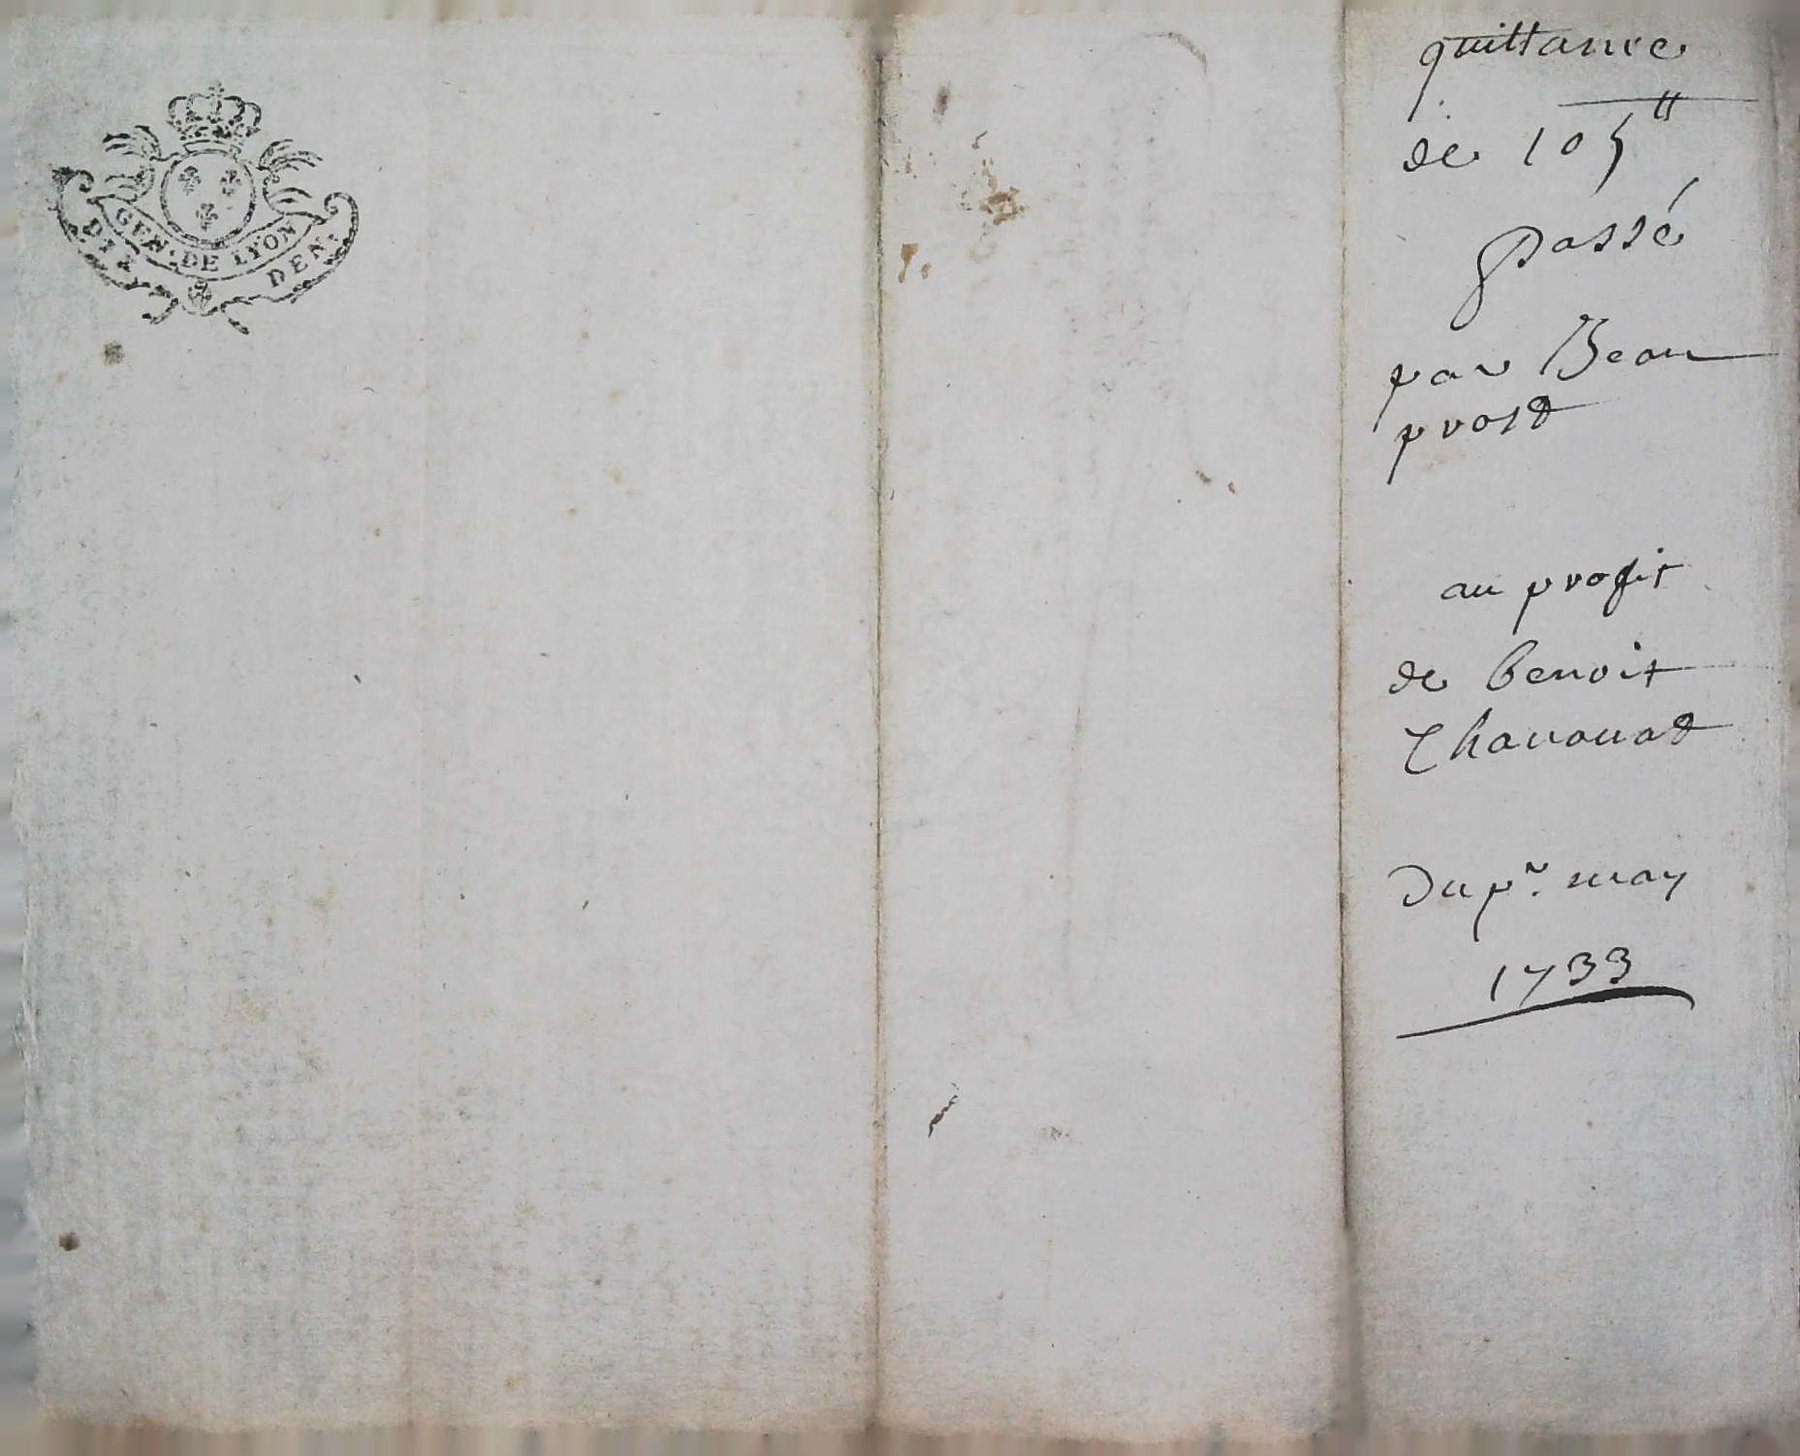 GEN. DE LYON
DIX DEN.
quittance
de 105 ₶
passé
par Jean
prost
au profit
de benoit
Chavanat
Du pr. may
1733